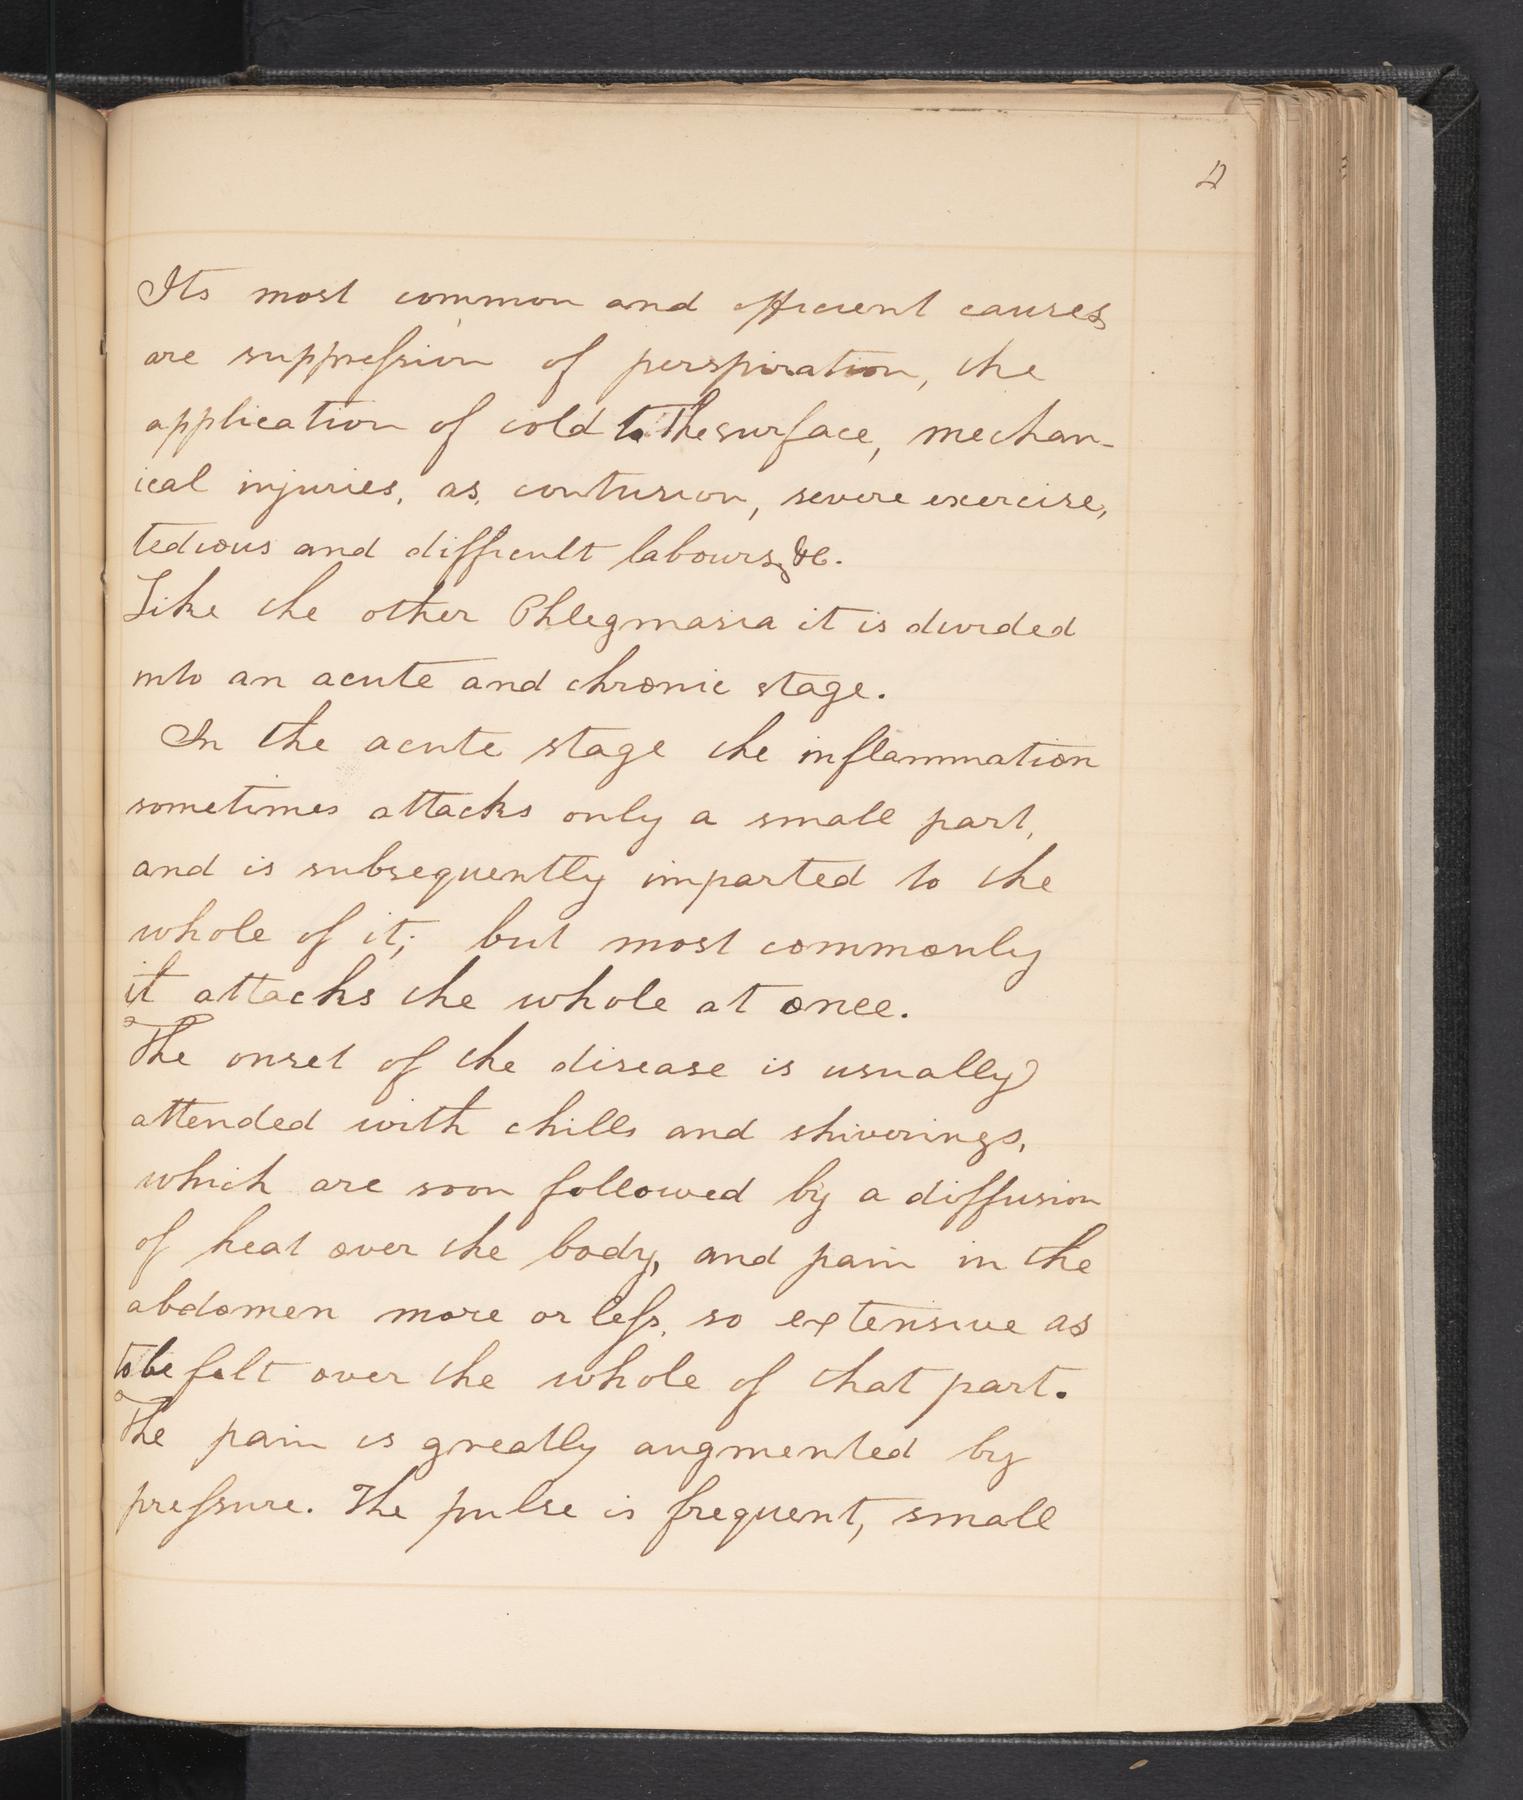 4
Its most common and efficient causes
are suppression of perspiration, the
application of cold to the surface, mechan-
ical injuries, as, contusion, severe exercise,
tedious and difficult labours, &c.
Like the other Phlegmasia it is divided
into an acute and chronic stage.
In the acute stage the inflammation
sometimes attacks only a small part,
and is subsequently imparted to the
whole of it; but most commonly
it attacks the whole at once.
The onset of the disease is usually
attended with chills and shiverings,
which are soon followed by a diffusion
of heat over the body, and pain in the
abdomen more or less, so extensive as
to be felt over the whole of that part.
The pain is greatly augmented by
pressure. The pulse is frequent, small